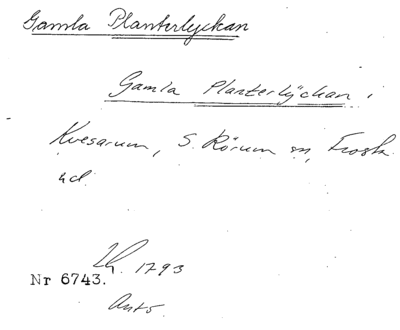 Gamla Planterlyckan
Gamla Planterlyckan i
Kvesarum, S. Rörum sn, Frosta
hd.
Lh. 1793
Nr 6743.